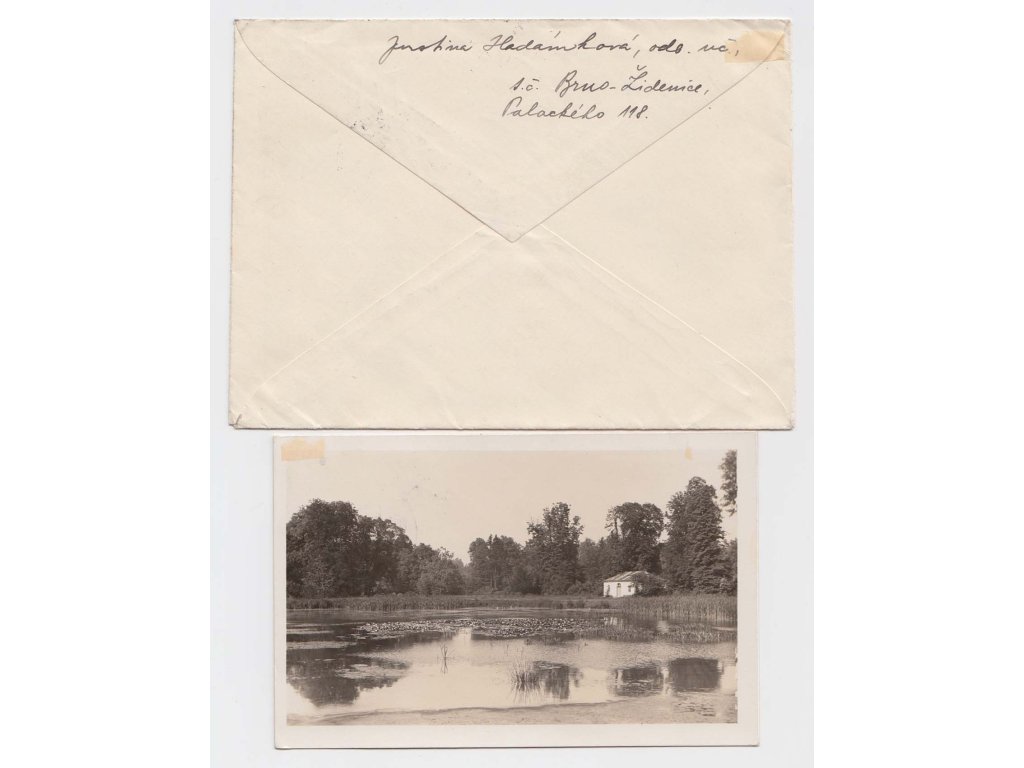 Justina Hadámková, odb. uč.,
t.č. Brno-Židenice,
Palackého 118.